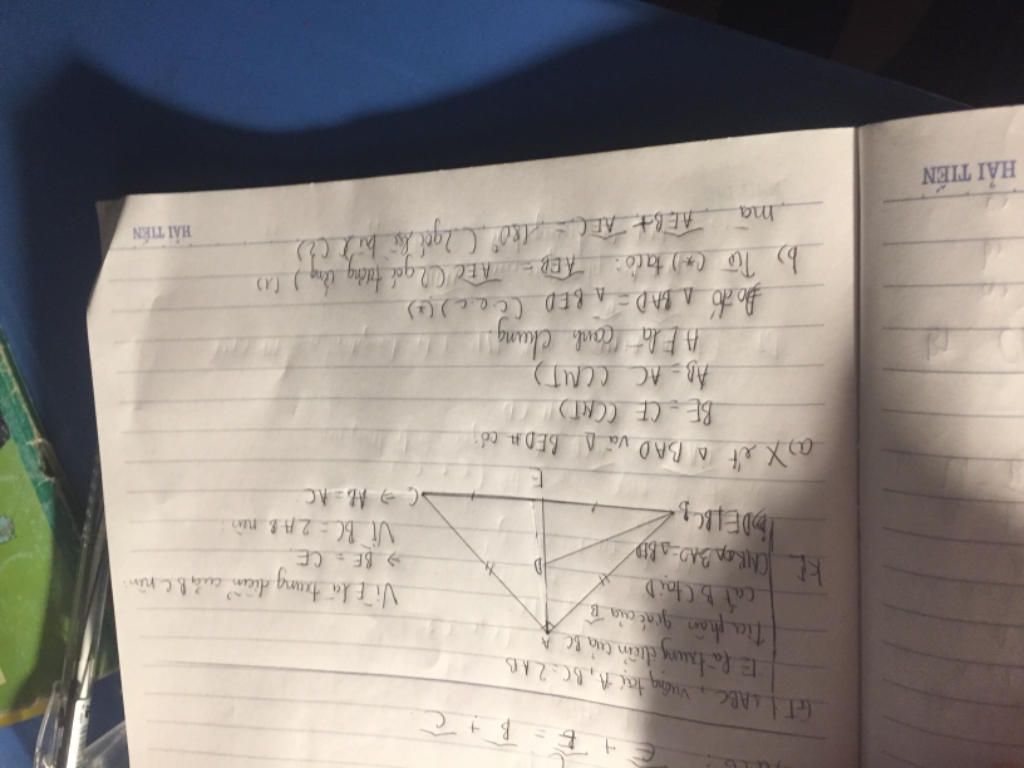 Ê + B̂ = B̂ + Ĉ
GT | ΔABC, vuông tại A, BC = 2AB
E là trung điểm của BC
Tia phân giác của B̂
cắt BC tại D
KL
CMR: a) ΔBAD = ΔBED
b) DE ⊥ BC
A
D
B
C
E
Vì E là trung điểm của BC nên:
⇒ BE = CE
Vì BC = 2AB nên:
⇒ AB = AC
a) Xét Δ BAD và Δ BED có:
BE = CE (CMT)
AB = AC (CMT)
AE là cạnh chung
Do đó Δ BAD = Δ BED (c.c.c) (*)
b) Từ (*) ta có: AEB = AEC (2 góc tương ứng) (1)
mà AEB + AEC = 180° (2 góc kề bù) (2)
HẢI TIẾN
HẢI TIẾN